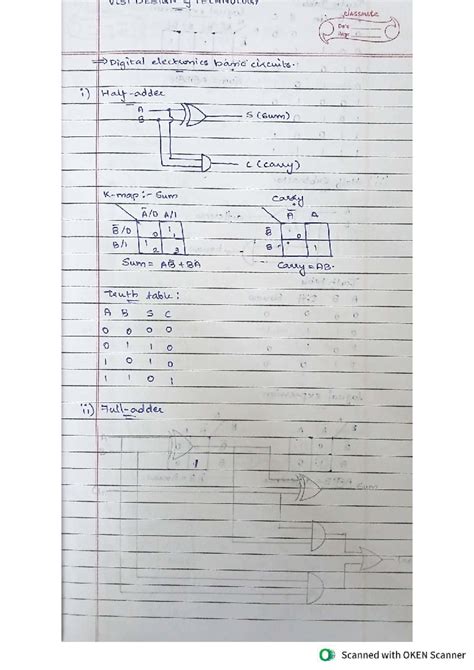 VLSI DESIGN & TECHNOLOGY
classmate
Date
Page
⇒ Digital electronics basic circuits.
i) Half-adder
A
B
S (Sum)
C (carry)
K-map :- Sum
carry
A̅/0 A/1
A̅ A
B̅/0 0 1
B̅ 0
B/1 1
B 1
Sum = AB̅ + BA̅
Carry = AB.
Truth table :
A B S C
0 0 0 0
0 1 1 0
1 0 1 0
1 1 0 1
ii) Full-adder
Sum
Scanned with OKEN Scanner